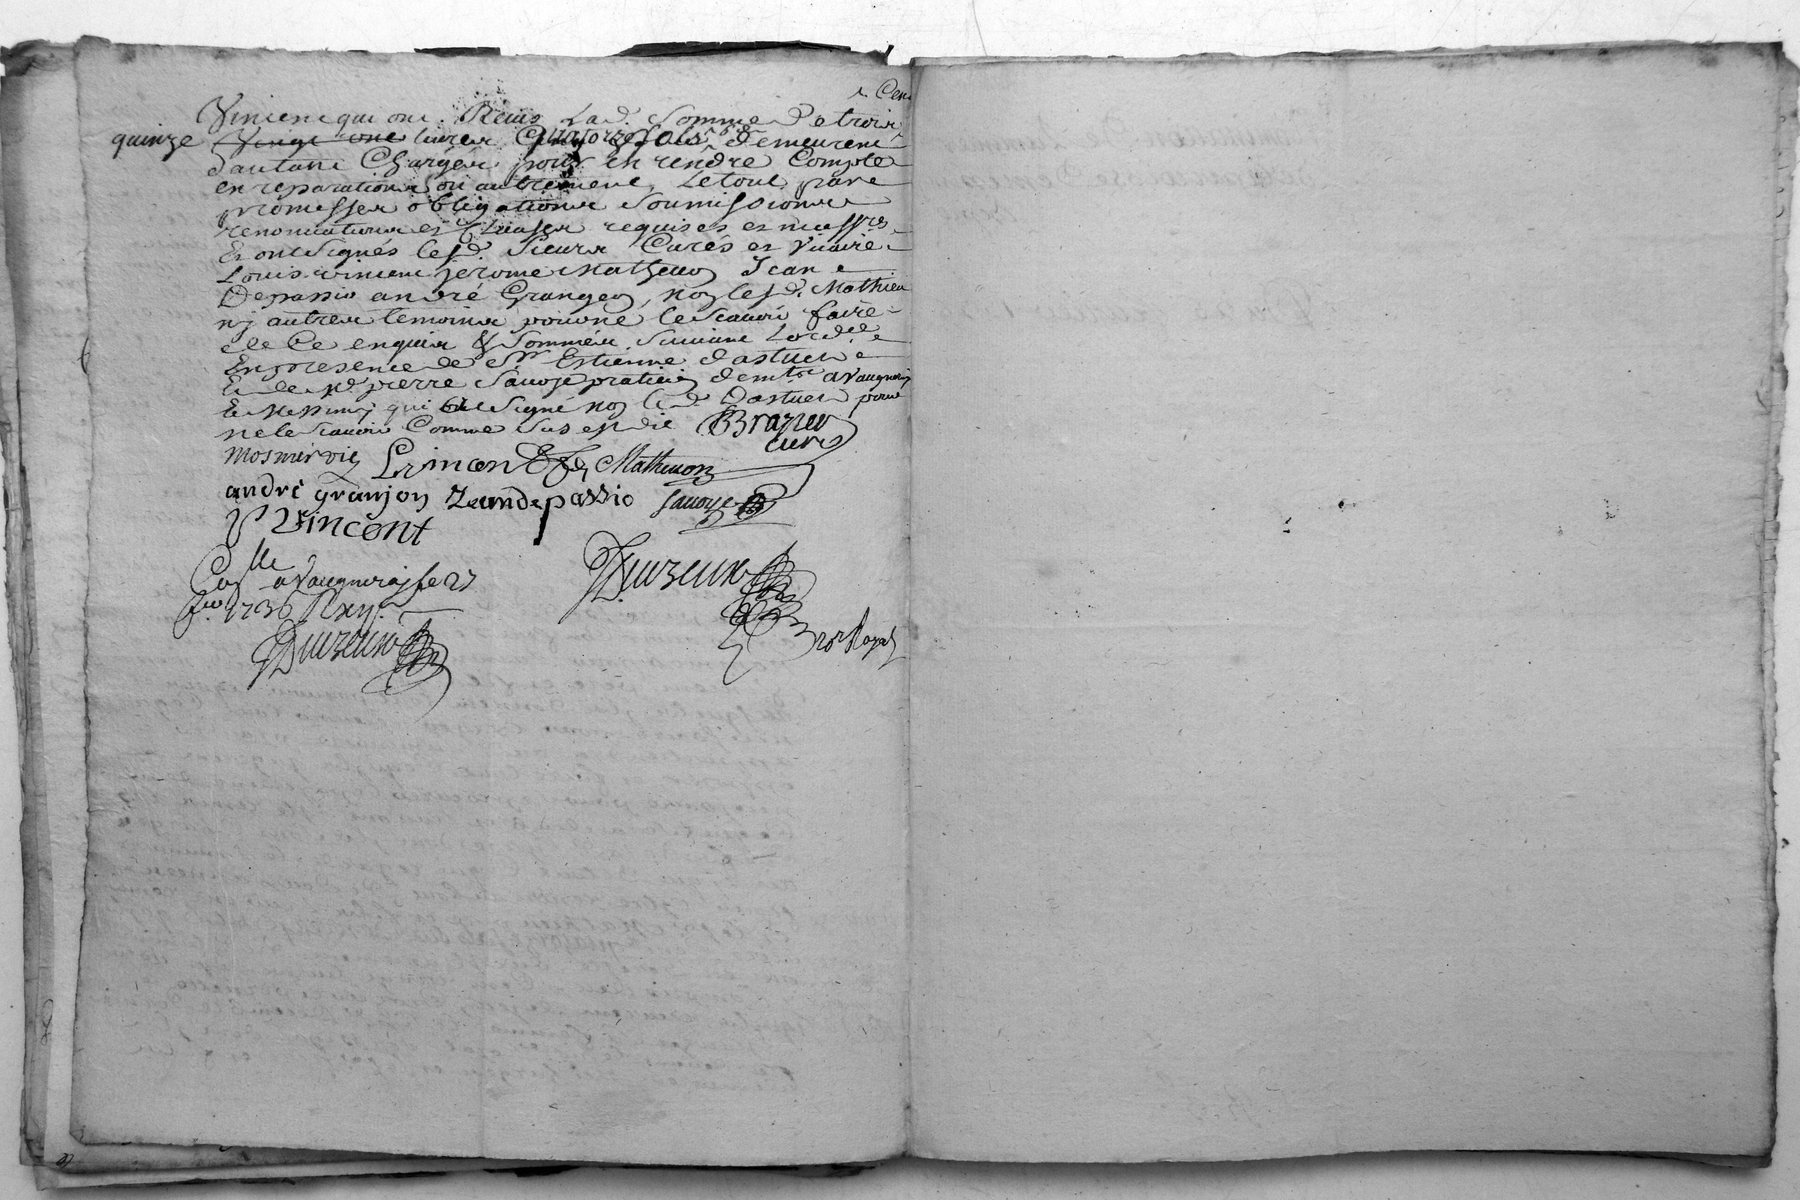 Vincent qui ont Reçus Lad. somme De trois Cent
quinze Vingt une livres Quatorze sols demeurent
dautant Chargés pour en rendre Compte
en reparations ou autrement, Le tout par
promesses obligations soumissions
renonciations et Clauses requises et
Et ont signés lesd. Sieurs Curés et Vicaire
Louis Vincent jerome Mathevon Jean
Depassio andré Grangeon, non led. Mathieu
nj autres temoins pour ne le scavoir faire
de Ce enquis & sommés suivant Lord.ce
En presence de Sr Estienne dastier
Et de Me pierre Savoye praticien dem.t a Vaugneray
Et Messimj qui ont signé non le d. Dastier pour
ne le scavoir Comme sus est dit Brazier
curé
mosnier vic L vincent Mathevon
andré granjon Jean depassio savoye
V Vincent
Con.lle a Vaugneray le 27
1736 Reçu
Duzeux
Duzeux
no.re Royal